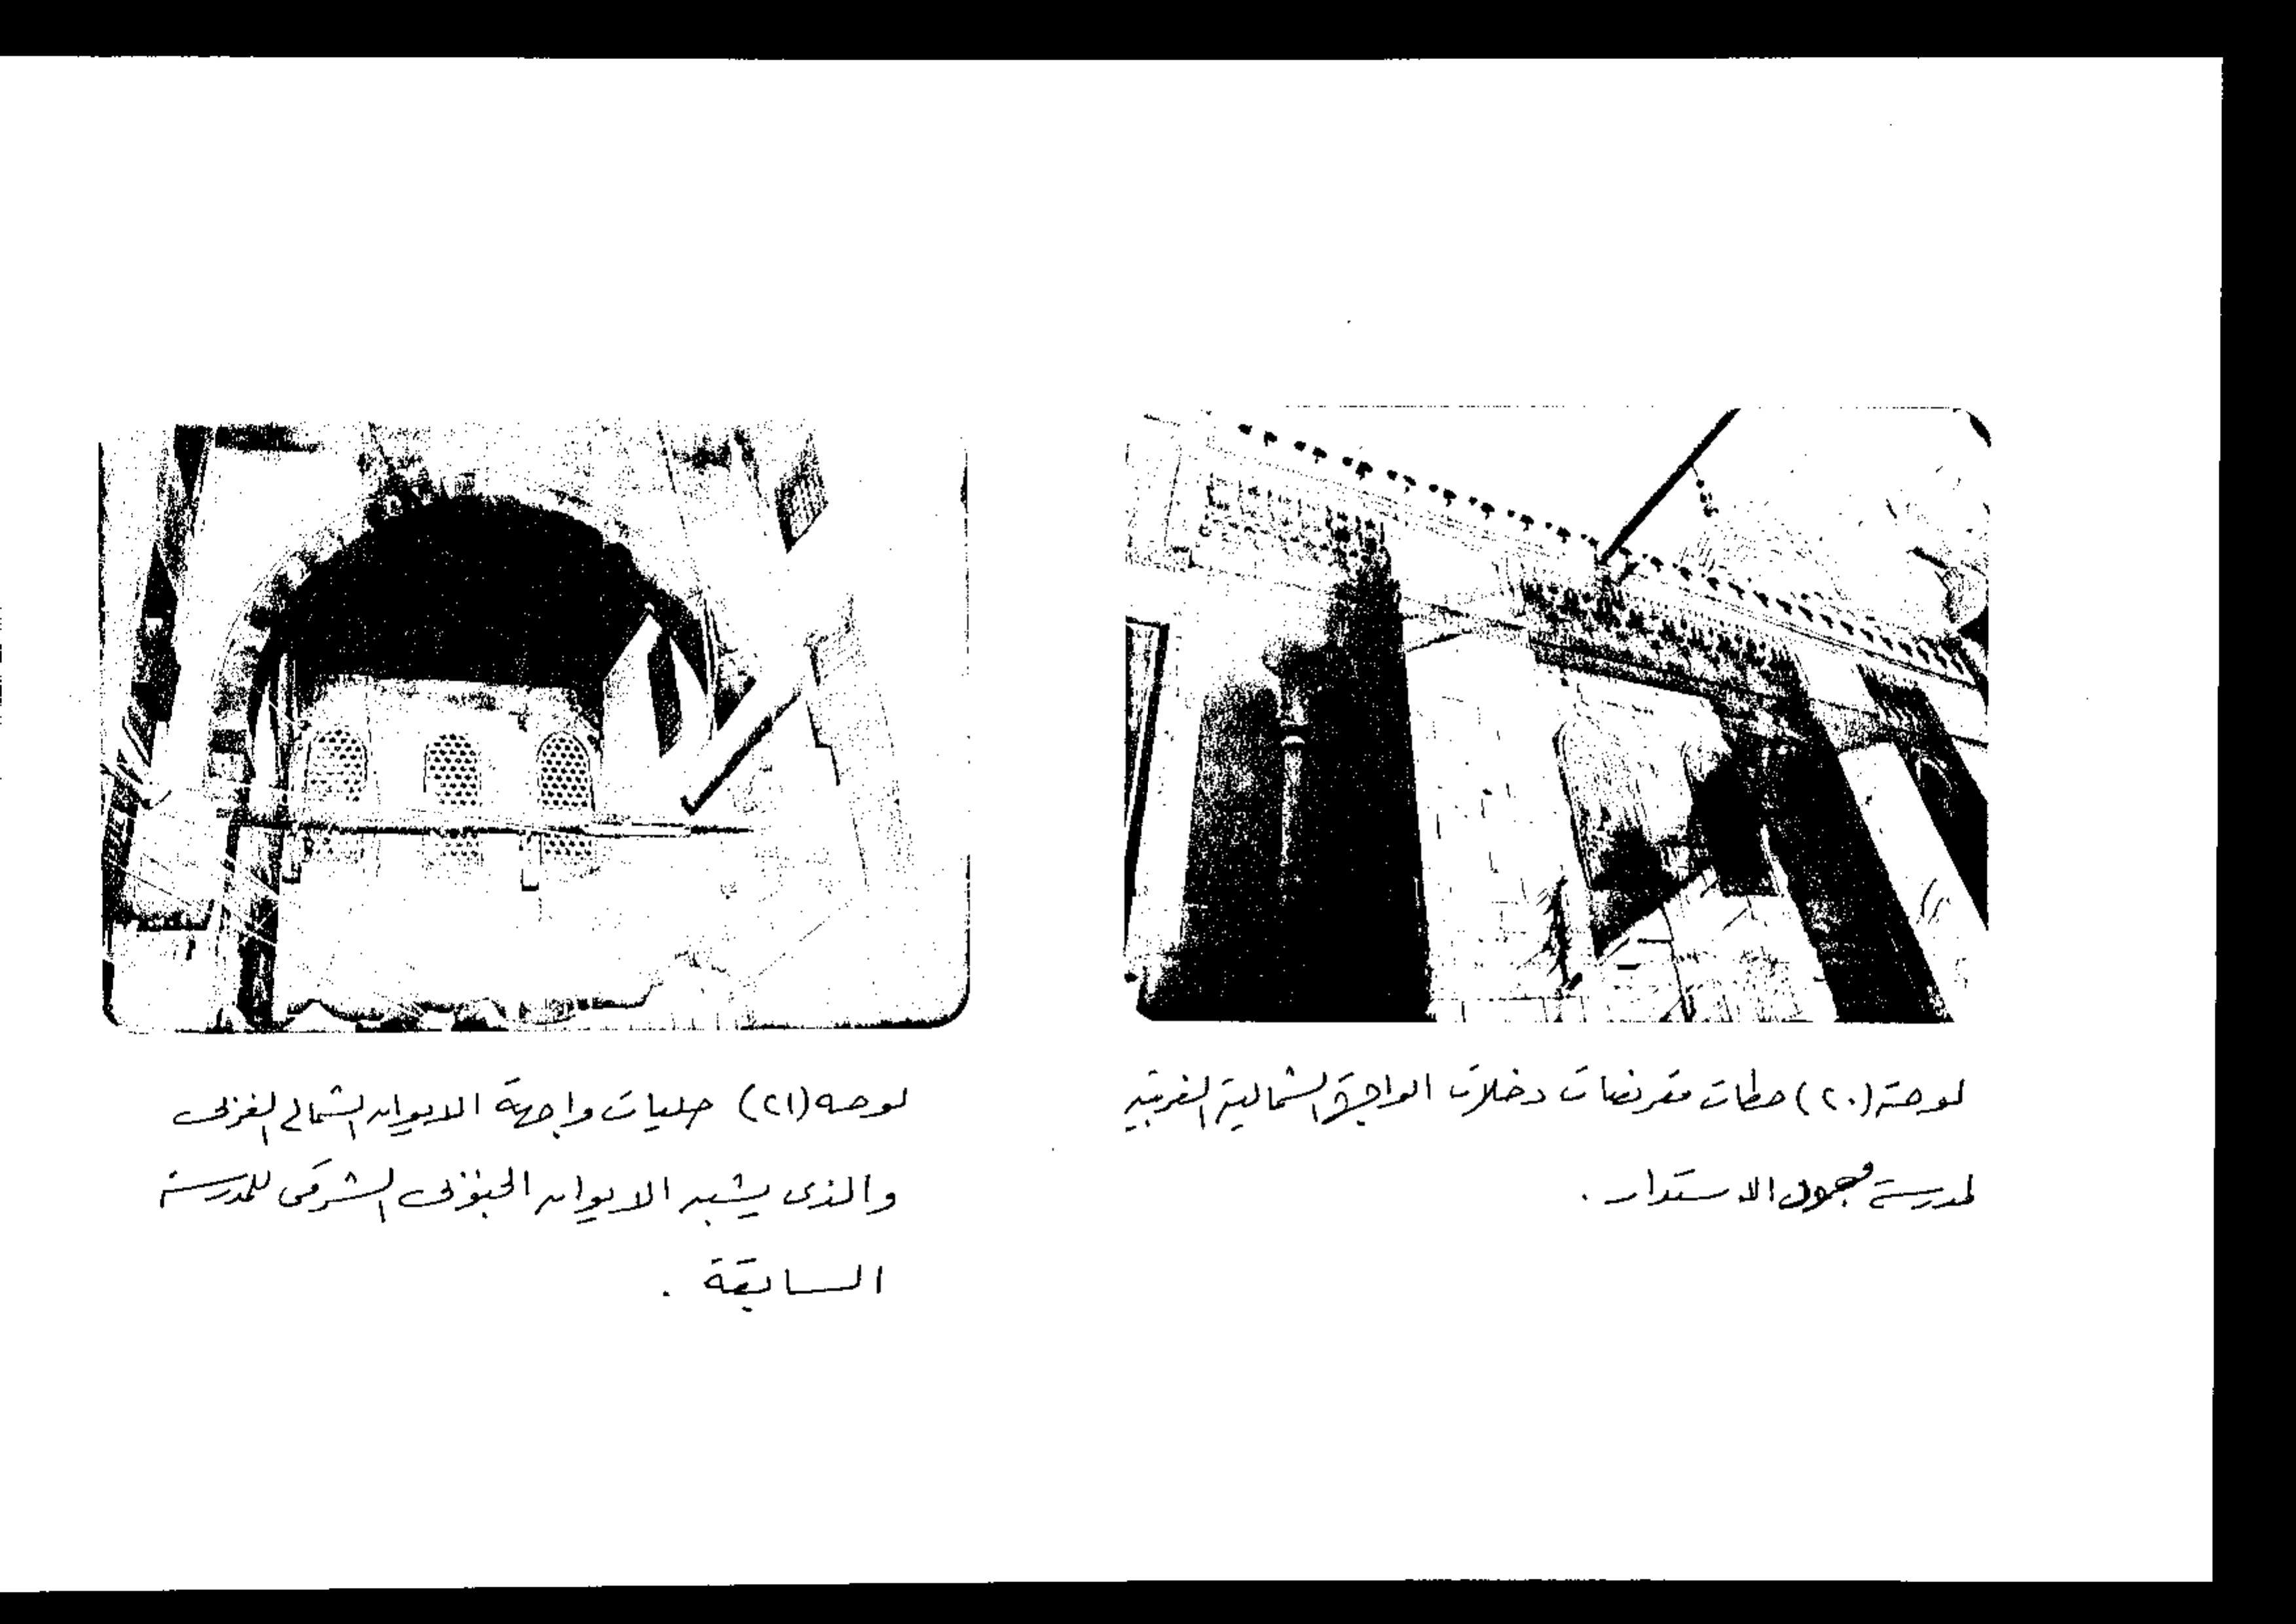 لوحة (٢٠) حطات مقرنصات دخلات الواجهة الشمالية الغربية
لمدرسة الاستدار .
لوحه (٢١) حليات واجهة الايوان الشمالى الغربى
والذى يشبه الايوان الجنوبى الشرقى للمدرسة
السابقة .